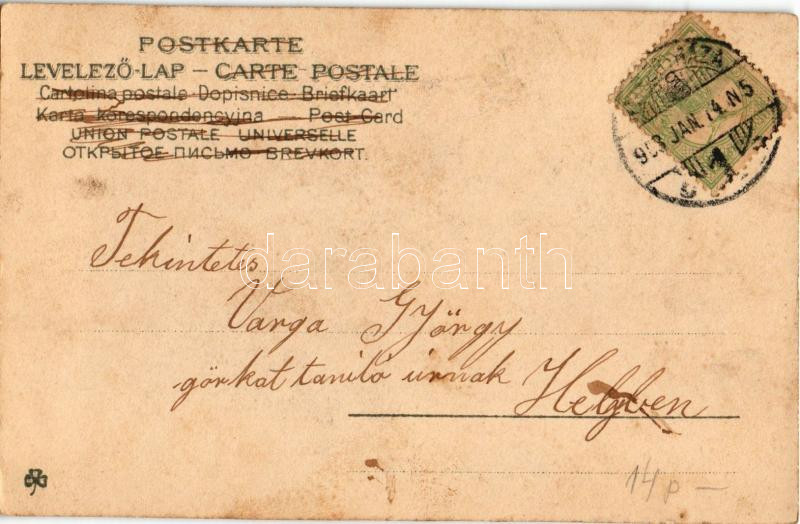 POSTKARTE
LEVELEZŐ-LAP – CARTE POSTALE
Cartolina postale Dopisnice Briefkaart
Karta korespondencyjna — Post Card
UNION POSTALE UNIVERSELLE
ОТКРЫТОЕ ПИСЬМО BREVKORT.
903 JAN. 14. N 5
Tekintetes
darabanth
Varga György
görkat tanító úrnak Helyben
14 p –